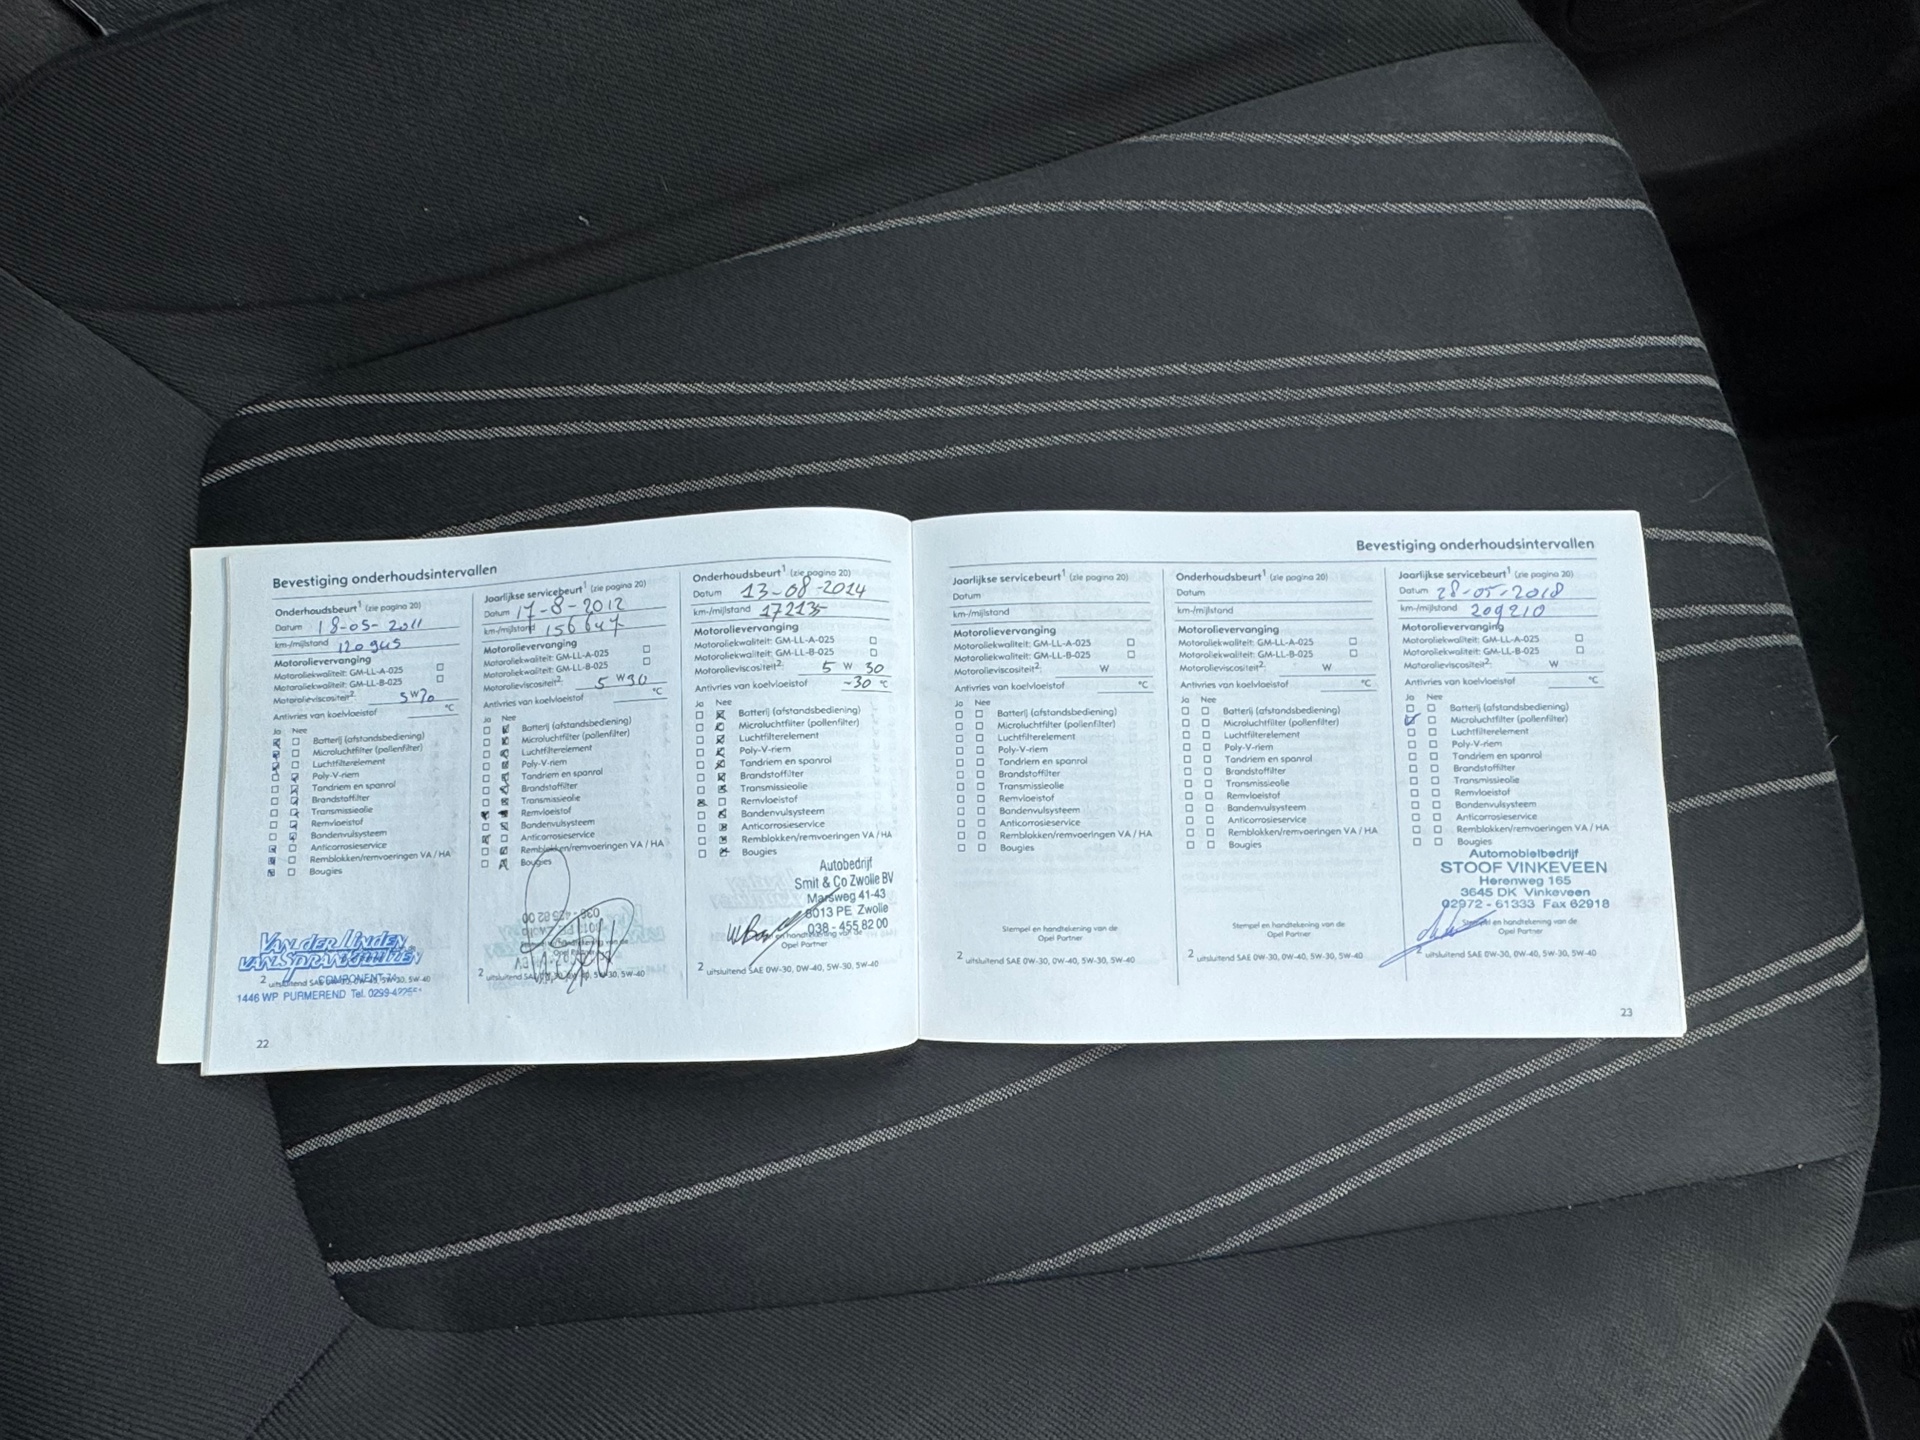 Bevestiging onderhoudsintervallen
Onderhoudsbeurt1 (zie pagina 20)
Datum 18-05-2011
km-/mijlstand 120945
Motorolievervanging
Motoroliekwaliteit: GM-LL-A-025
Motoroliekwaliteit: GM-LL-B-025
Motorolieviscositeit2: 5 W 30
Antivries van koelvloeistof °C
Ja Nee
Batterij (afstandsbediening)
Microluchtfilter (pollenfilter)
Luchtfilterelement
Poly-V-riem
Tandriem en spanrol
Brandstoffilter
Transmissieolie
Remvloeistof
Bandenvulsysteem
Anticorrosieservice
Remblokken/remvoeringen VA / HA
Bougies
VAN DER LINDEN
VAN SPRANKHUIZEN
COMPONENT 74
2 uitsluitend SAE 0W-30, 0W-40, 5W-30, 5W-40
1446 WP PURMEREND Tel. 0299-
22
Jaarlijkse servicebeurt1 (zie pagina 20)
Datum 17-8-2012
km-/mijlstand 156647
Motorolievervanging
Motoroliekwaliteit: GM-LL-A-025
Motoroliekwaliteit: GM-LL-B-025
Motorolieviscositeit2: 5 W 30
Antivries van koelvloeistof °C
Ja Nee
Batterij (afstandsbediening)
Microluchtfilter (pollenfilter)
Luchtfilterelement
Poly-V-riem
Tandriem en spanrol
Brandstoffilter
Transmissieolie
Remvloeistof
Bandenvulsysteem
Anticorrosieservice
Remblokken/remvoeringen VA / HA
Bougies
038 - 455 82 00
2 uitsluitend SAE 0W-30, 0W-40, 5W-30, 5W-40
Onderhoudsbeurt1 (zie pagina 20)
Datum 13-08-2014
km-/mijlstand 172135
Motorolievervanging
Motoroliekwaliteit: GM-LL-A-025
Motoroliekwaliteit: GM-LL-B-025
Motorolieviscositeit2: 5 W 30
Antivries van koelvloeistof -30 °C
Ja Nee
Batterij (afstandsbediening)
Microluchtfilter (pollenfilter)
Luchtfilterelement
Poly-V-riem
Tandriem en spanrol
Brandstoffilter
Transmissieolie
Remvloeistof
Bandenvulsysteem
Anticorrosieservice
Remblokken/remvoeringen VA / HA
Bougies
Autobedrijf
Smit & Co Zwolle BV
Marsweg 41-43
8013 PE Zwolle
038 - 455 82 00
en handtekening van de
Opel Partner
2 uitsluitend SAE 0W-30, 0W-40, 5W-30, 5W-40
Bevestiging onderhoudsintervallen
Jaarlijkse servicebeurt1 (zie pagina 20)
Datum
km-/mijlstand
Motorolievervanging
Motoroliekwaliteit: GM-LL-A-025
Motoroliekwaliteit: GM-LL-B-025
Motorolieviscositeit2: W
Antivries van koelvloeistof °C
Ja Nee
Batterij (afstandsbediening)
Microluchtfilter (pollenfilter)
Luchtfilterelement
Poly-V-riem
Tandriem en spanrol
Brandstoffilter
Transmissieolie
Remvloeistof
Bandenvulsysteem
Anticorrosieservice
Remblokken/remvoeringen VA / HA
Bougies
Stempel en handtekening van de
Opel Partner
2 uitsluitend SAE 0W-30, 0W-40, 5W-30, 5W-40
Onderhoudsbeurt1 (zie pagina 20)
Datum
km-/mijlstand
Motorolievervanging
Motoroliekwaliteit: GM-LL-A-025
Motoroliekwaliteit: GM-LL-B-025
Motorolieviscositeit2: W
Antivries van koelvloeistof °C
Ja Nee
Batterij (afstandsbediening)
Microluchtfilter (pollenfilter)
Luchtfilterelement
Poly-V-riem
Tandriem en spanrol
Brandstoffilter
Transmissieolie
Remvloeistof
Bandenvulsysteem
Anticorrosieservice
Remblokken/remvoeringen VA / HA
Bougies
Stempel en handtekening van de
Opel Partner
2 uitsluitend SAE 0W-30, 0W-40, 5W-30, 5W-40
Jaarlijkse servicebeurt1 (zie pagina 20)
Datum 28-05-2018
km-/mijlstand 209210
Motorolievervanging
Motoroliekwaliteit: GM-LL-A-025
Motoroliekwaliteit: GM-LL-B-025
Motorolieviscositeit2: W
Antivries van koelvloeistof °C
Ja Nee
Batterij (afstandsbediening)
Microluchtfilter (pollenfilter)
Luchtfilterelement
Poly-V-riem
Tandriem en spanrol
Brandstoffilter
Transmissieolie
Remvloeistof
Bandenvulsysteem
Anticorrosieservice
Remblokken/remvoeringen VA / HA
Bougies
Automobielbedrijf
STOOF VINKEVEEN
Herenweg 165
3645 DK Vinkeveen
02972 - 61333 Fax 62918
Stempel en handtekening van de
Opel Partner
2 uitsluitend SAE 0W-30, 0W-40, 5W-30, 5W-40
23